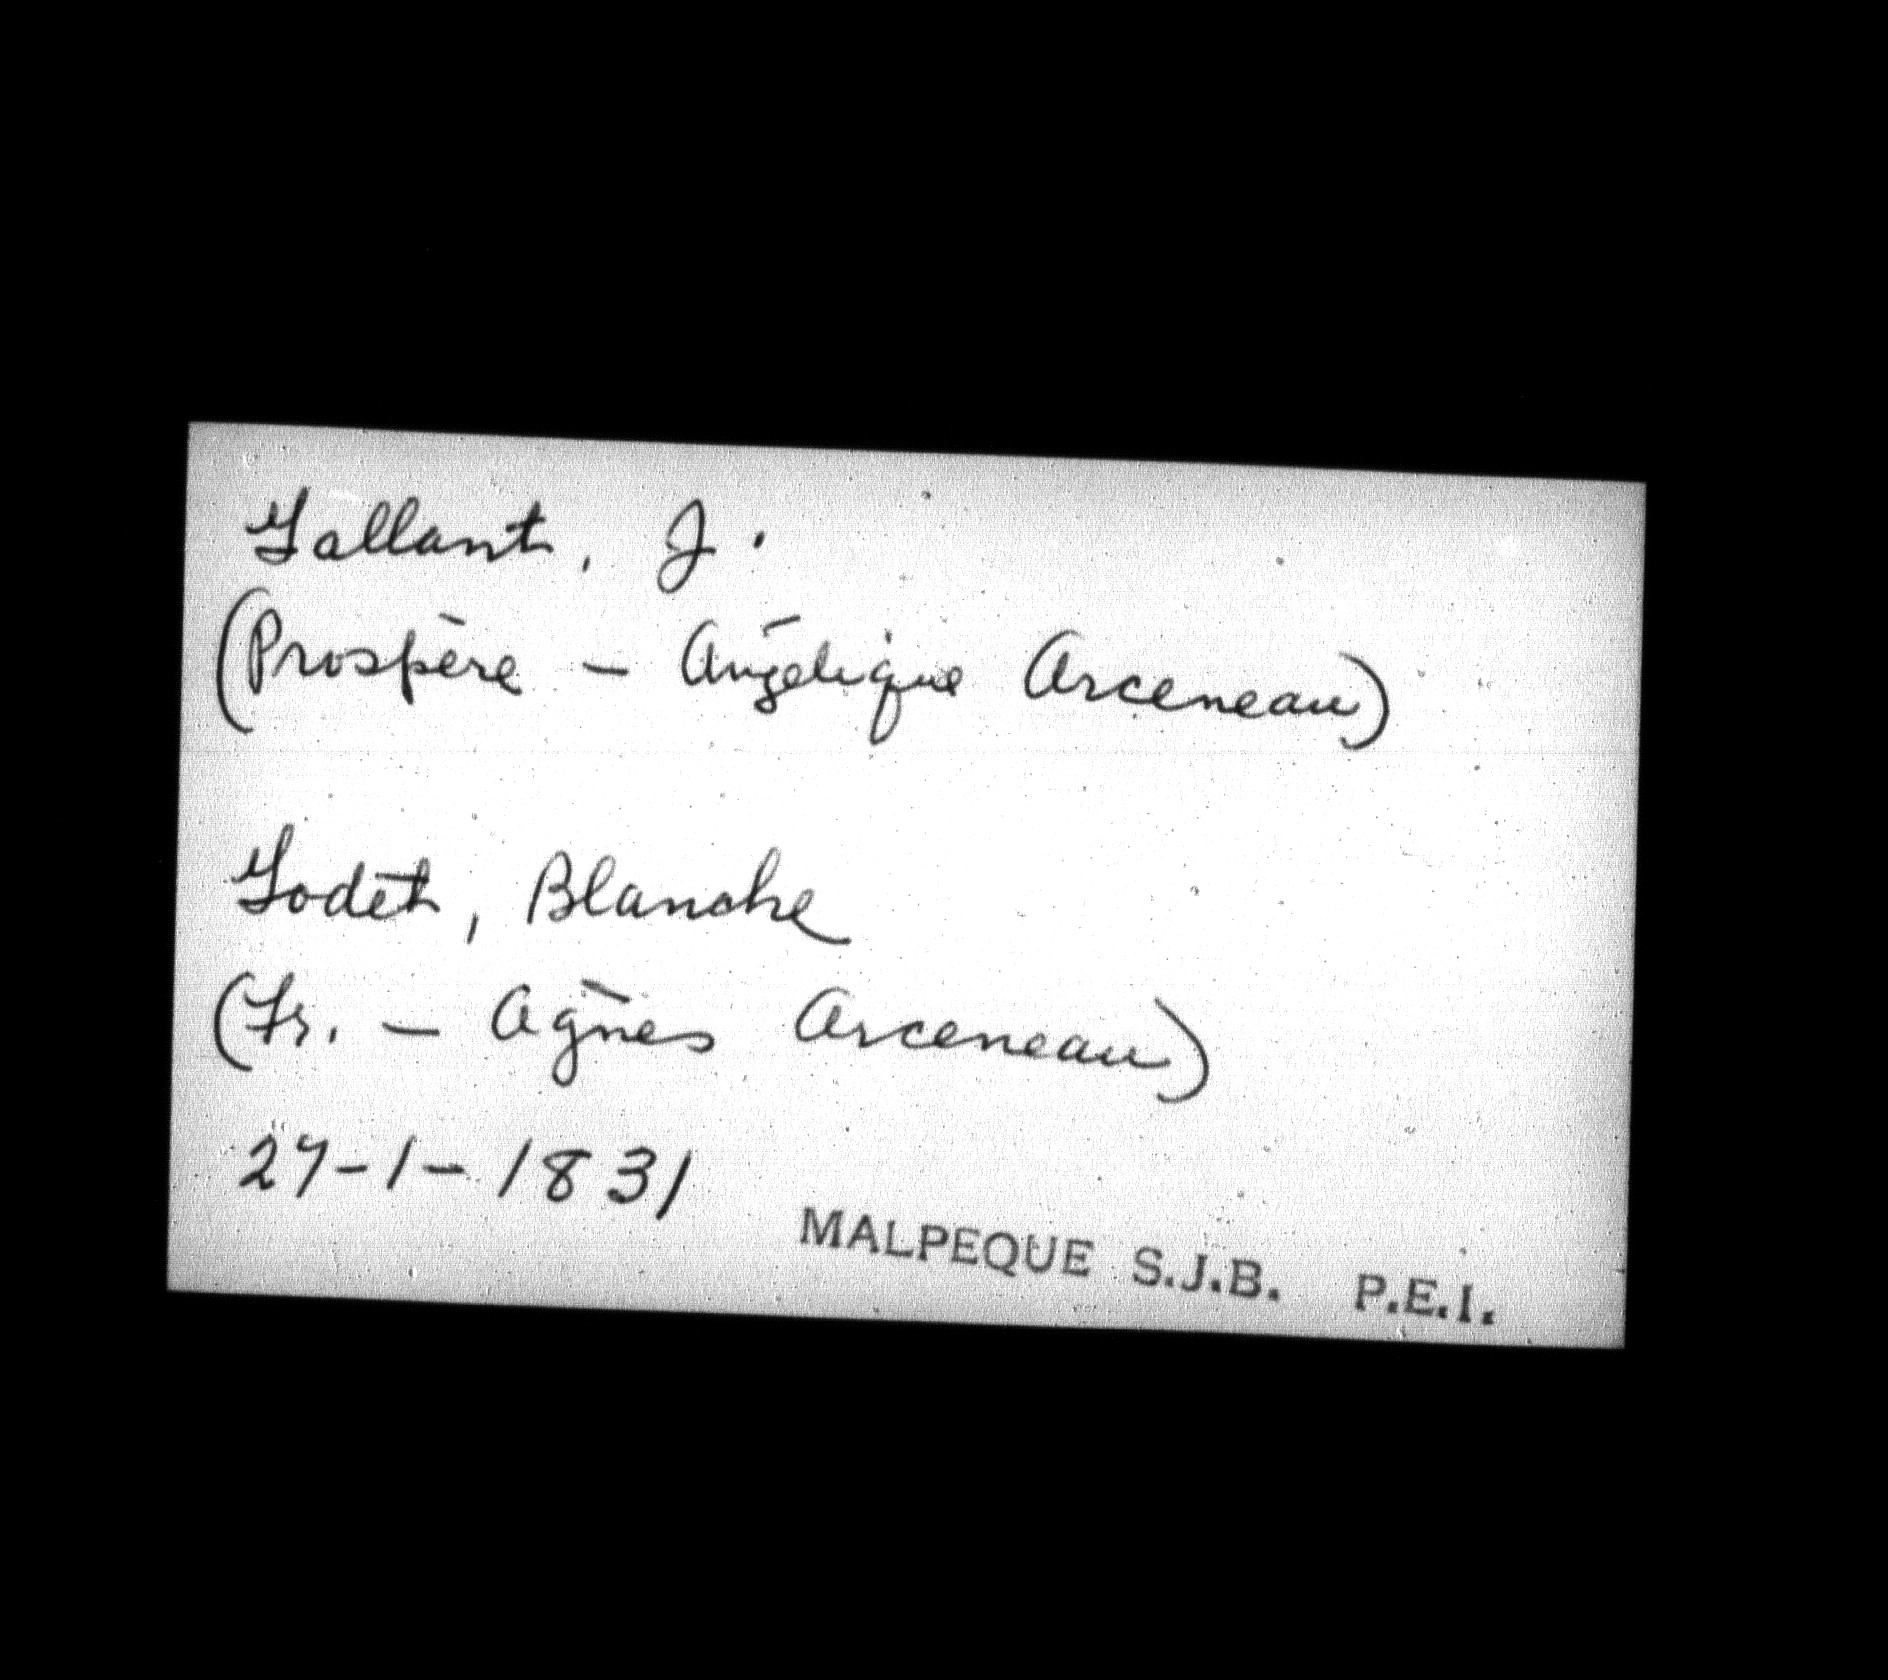 Gallant, J.
(Prospère - Angélique Arceneau)
Godet, Blanche
(Fr. - Agnès Arceneau)
27-1-1831
MALPEQUE S.J.B. P.E.I.